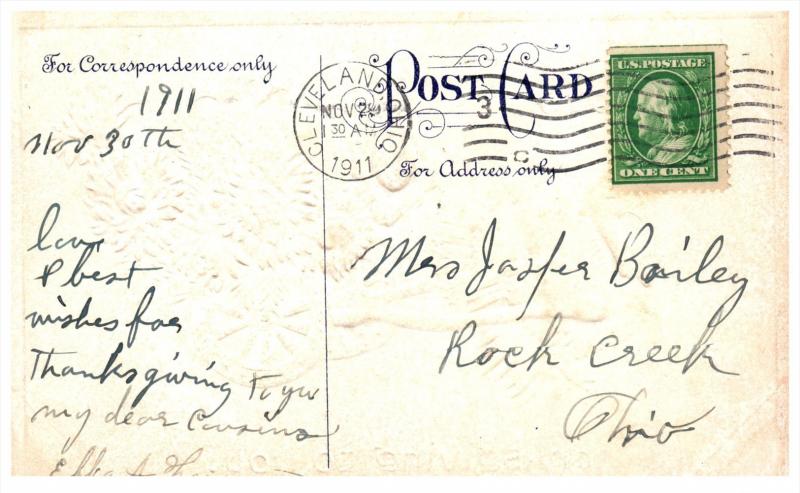 For Correspondence only
1911
Nov 30th
love
& best
wishes for
Thanksgiving to you
my dear Cousins
POST CARD
CLEVELAND, OHIO
NOV 28
30 A
1911
3
For Address only
U.S. POSTAGE
ONE CENT
Mrs Jasper Bailey
Rock Creek
Ohio